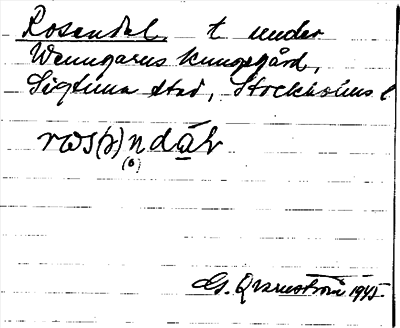 Rosendal, t under
Wenngarns kungsgård,
Sigtuna stad, Stockholms l
G. Qvarnström 1945